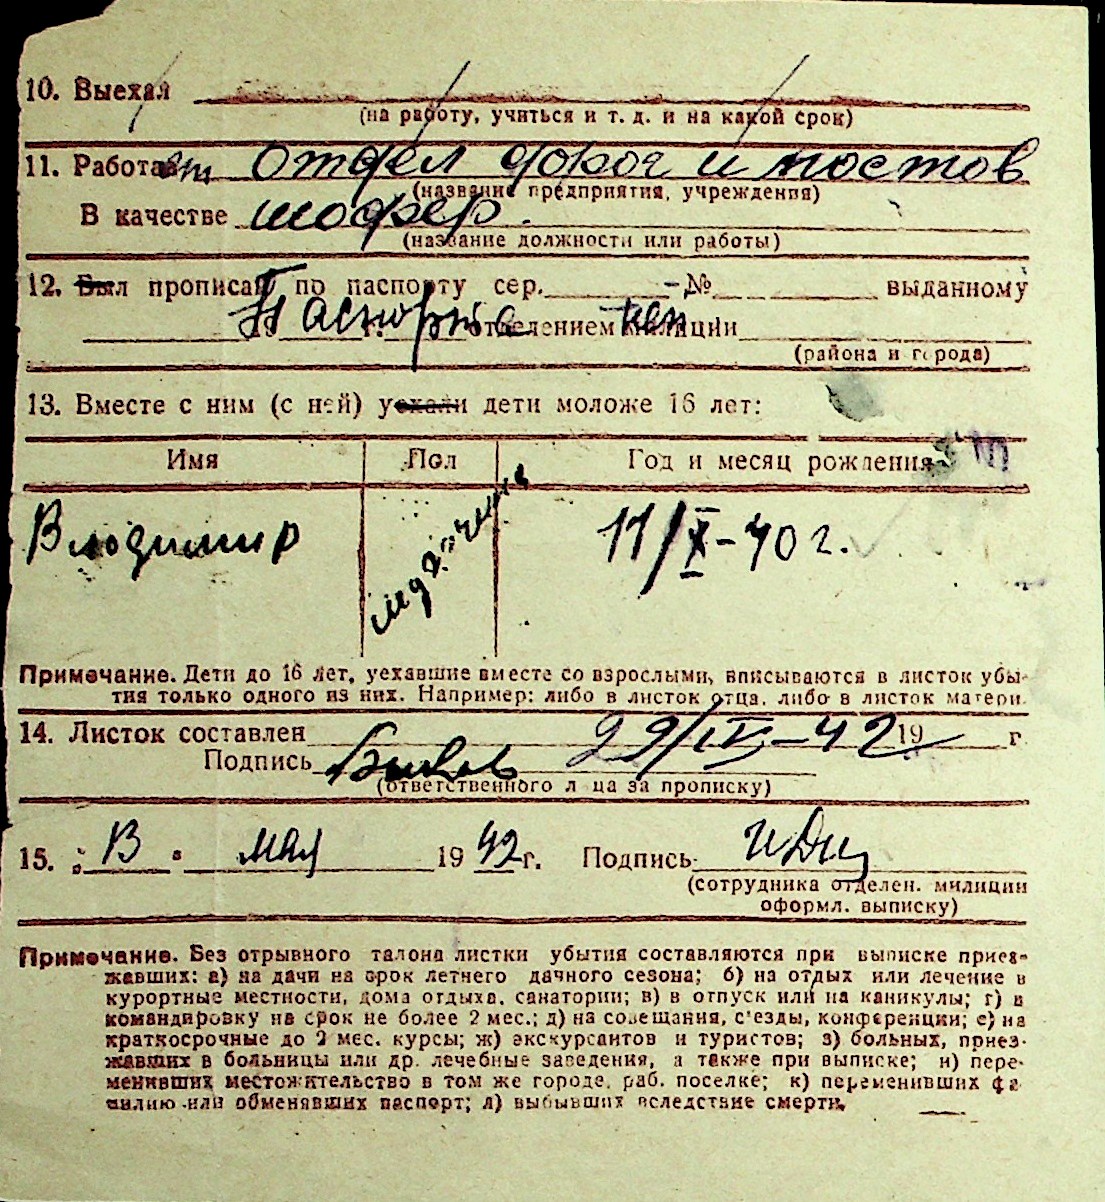 10. Выехал
(на работу, учиться и т. д. и на какой срок)
11. Работает Отдел дорог и мостов
(название предприятия, учреждения)
В качестве шофер.
(название должности или работы)
12. Был прописан по паспорту сер. № выданному
Паспорта нет отделением милиции
(района и города)
13. Вместе с ним (с ней) уехали дети моложе 16 лет:
Имя Пол Год и месяц рождения
Владимир мужчина 11/X-40 г.
Примечание. Дети до 16 лет, уехавшие вместе со взрослыми, вписываются в листок убы-
тия только одного из них. Например: либо в листок отца, либо в листок матери.
14. Листок составлен 29/IV-42 19 г.
Подпись
(ответственного лица за прописку)
15. „ 13 " мая 19 42 г. Подпись
(сотрудника отделен. милиции
оформл. выписку)
Примечание. Без отрывного талона листки убытия составляются при выписке приез-
жавших: а) на дачи на срок летнего дачного сезона; б) на отдых или лечение в
курортные местности, дома отдыха, санатории; в) в отпуск или на каникулы; г) в
командировку на срок не более 2 мес.; д) на совещания, с'езды, конференции; е) на
краткосрочные до 2 мес. курсы; ж) экскурсантов и туристов; з) больных, приез-
жавших в больницы или др. лечебные заведения, а также при выписке; и) пере-
менивших местожительство в том же городе, раб. поселке; к) переменивших фа-
милию или обменявших паспорт; л) выбывших вследствие смерти.